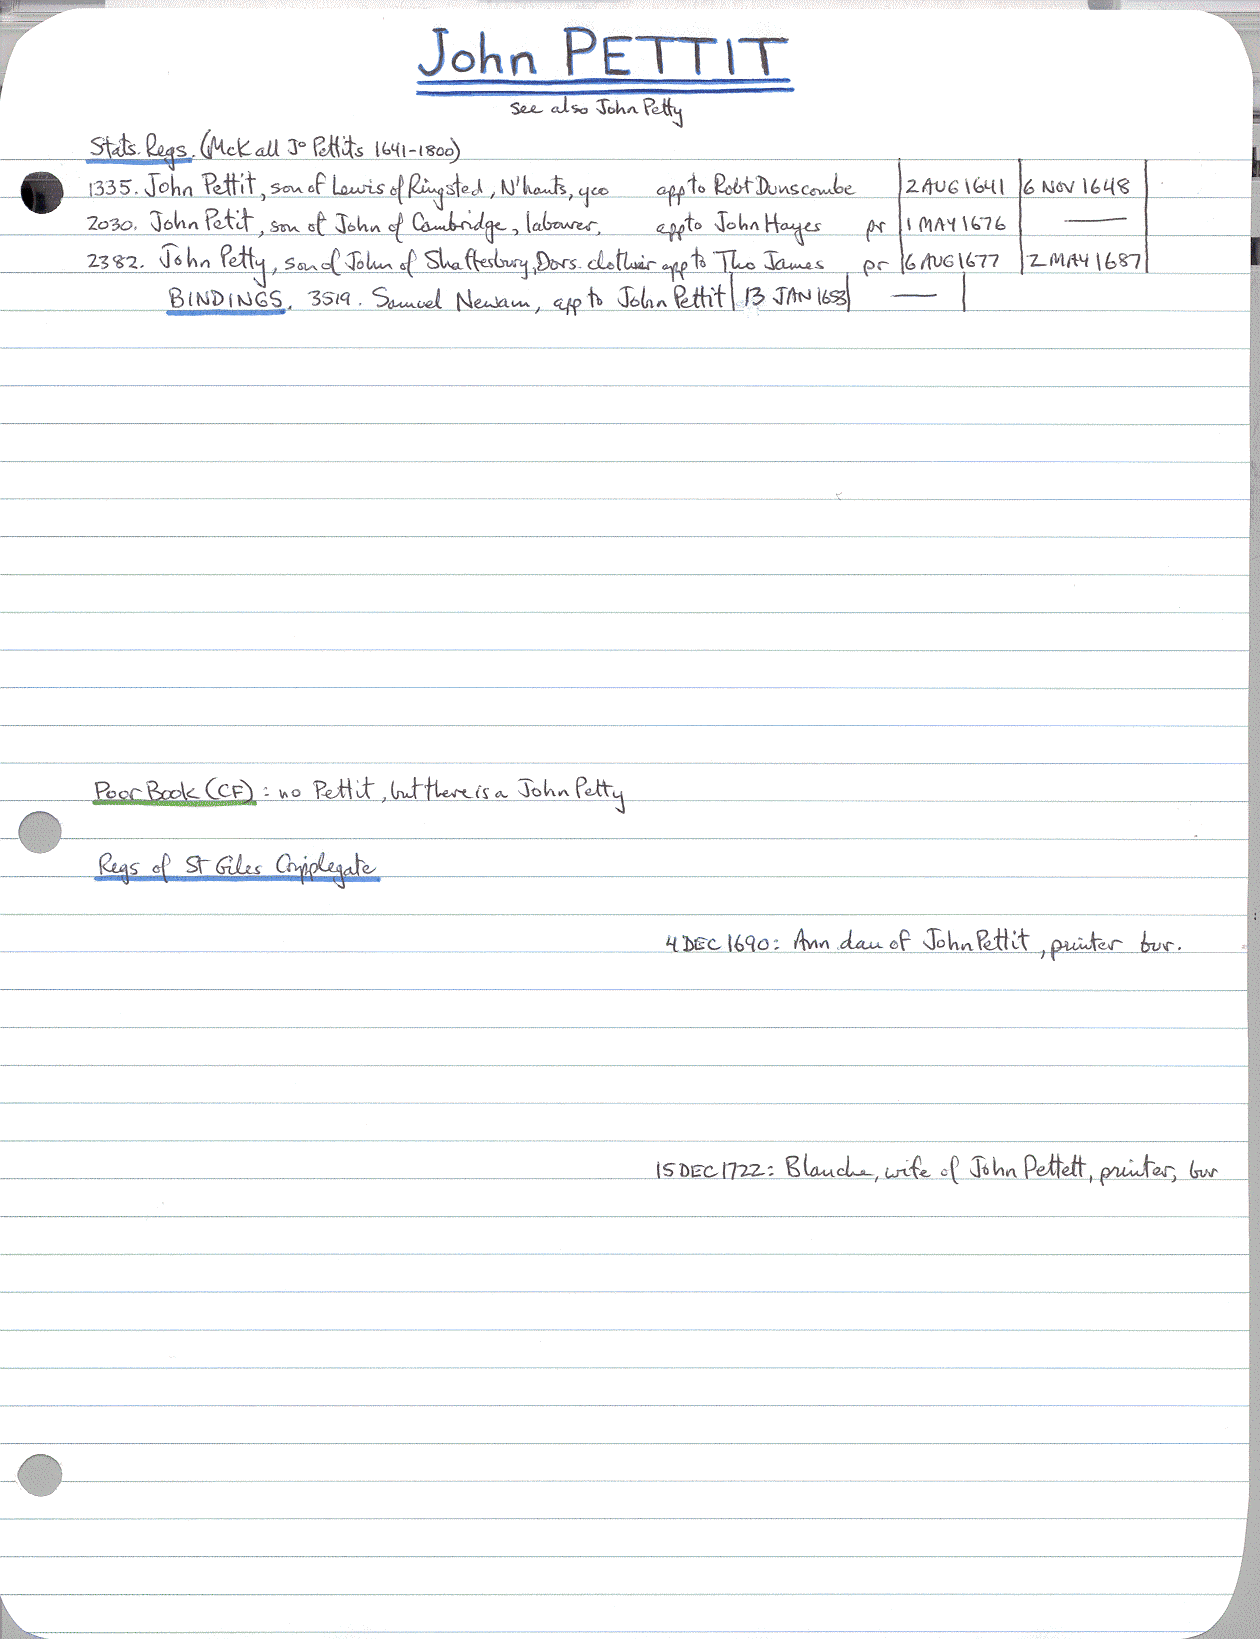 John PETTIT
see also John Petty
Stats. Regs. (McK all Jo Pettits 1641-1800)
1335. John Pettit, son of Lewis of Ringsted, N'hants, yeo app to Robt Dunscombe 2 AUG 1641 6 NOV 1648
2030. John Petit, son of John of Cambridge, labourer, app to John Hayes pr 1 MAY 1676 —
2382. John Petty, son of John of Shaftesbury, Dors. clothier app to Tho James pr 6 AUG 1677 2 MAY 1687
BINDINGS. 3519. Samuel Newam, app to John Pettit 13 JAN 1653 —
Poor Book (CF): no Pettit, but there is a John Petty
Regs of St Giles Cripplegate
4 DEC 1690: Ann dau of John Pettit, printer bur.
15 DEC 1722: Blanche, wife of John Pettett, printer, bur